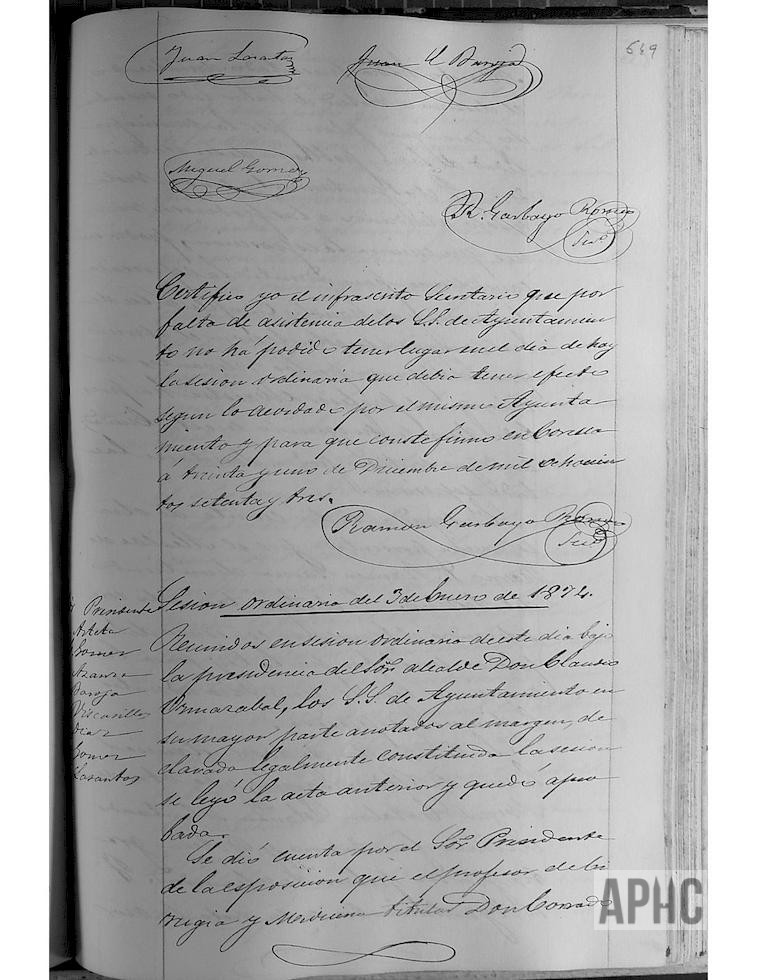 649
Juan Lasantas Juan U Baroja
Miguel Gomez
R. Garbayo Romeo
Srio
Certifico yo el infrascrito Secretario que por
falta de asistencia de los S.S. de Ayuntamien
to no há podido tener lugar en el dia de hoy
la sesion ordinaria que debia tener efecto
segun lo acordado por el mismo Ayunta
miento y para que conste firmo en Corella
á treinta y uno de Diciembre de mil ochocien
tos setenta y tres.
Ramon Garbayo Romeo
Srio
Sesion ordinaria del 3 de Enero de 1874.
Presidente
Arteta
Gomez
Azanza
Baroja
Viscasillas
Diaz
Gomez
Lasantas
Reunidos en sesion ordinaria de este dia bajo
la presidencia del Sor. alcalde Don Claudio
Ormazabal, los S.S. de Ayuntamiento en
su mayor parte anotados al margen, de
clarada legalmente constituida la sesion
se leyó la acta anterior y quedó apro
bada.
Se dió cuenta por el Sor. Presidente
de la esposicion que el profesor de Ci
rugia y Medicina titular Don Conrado
APHC